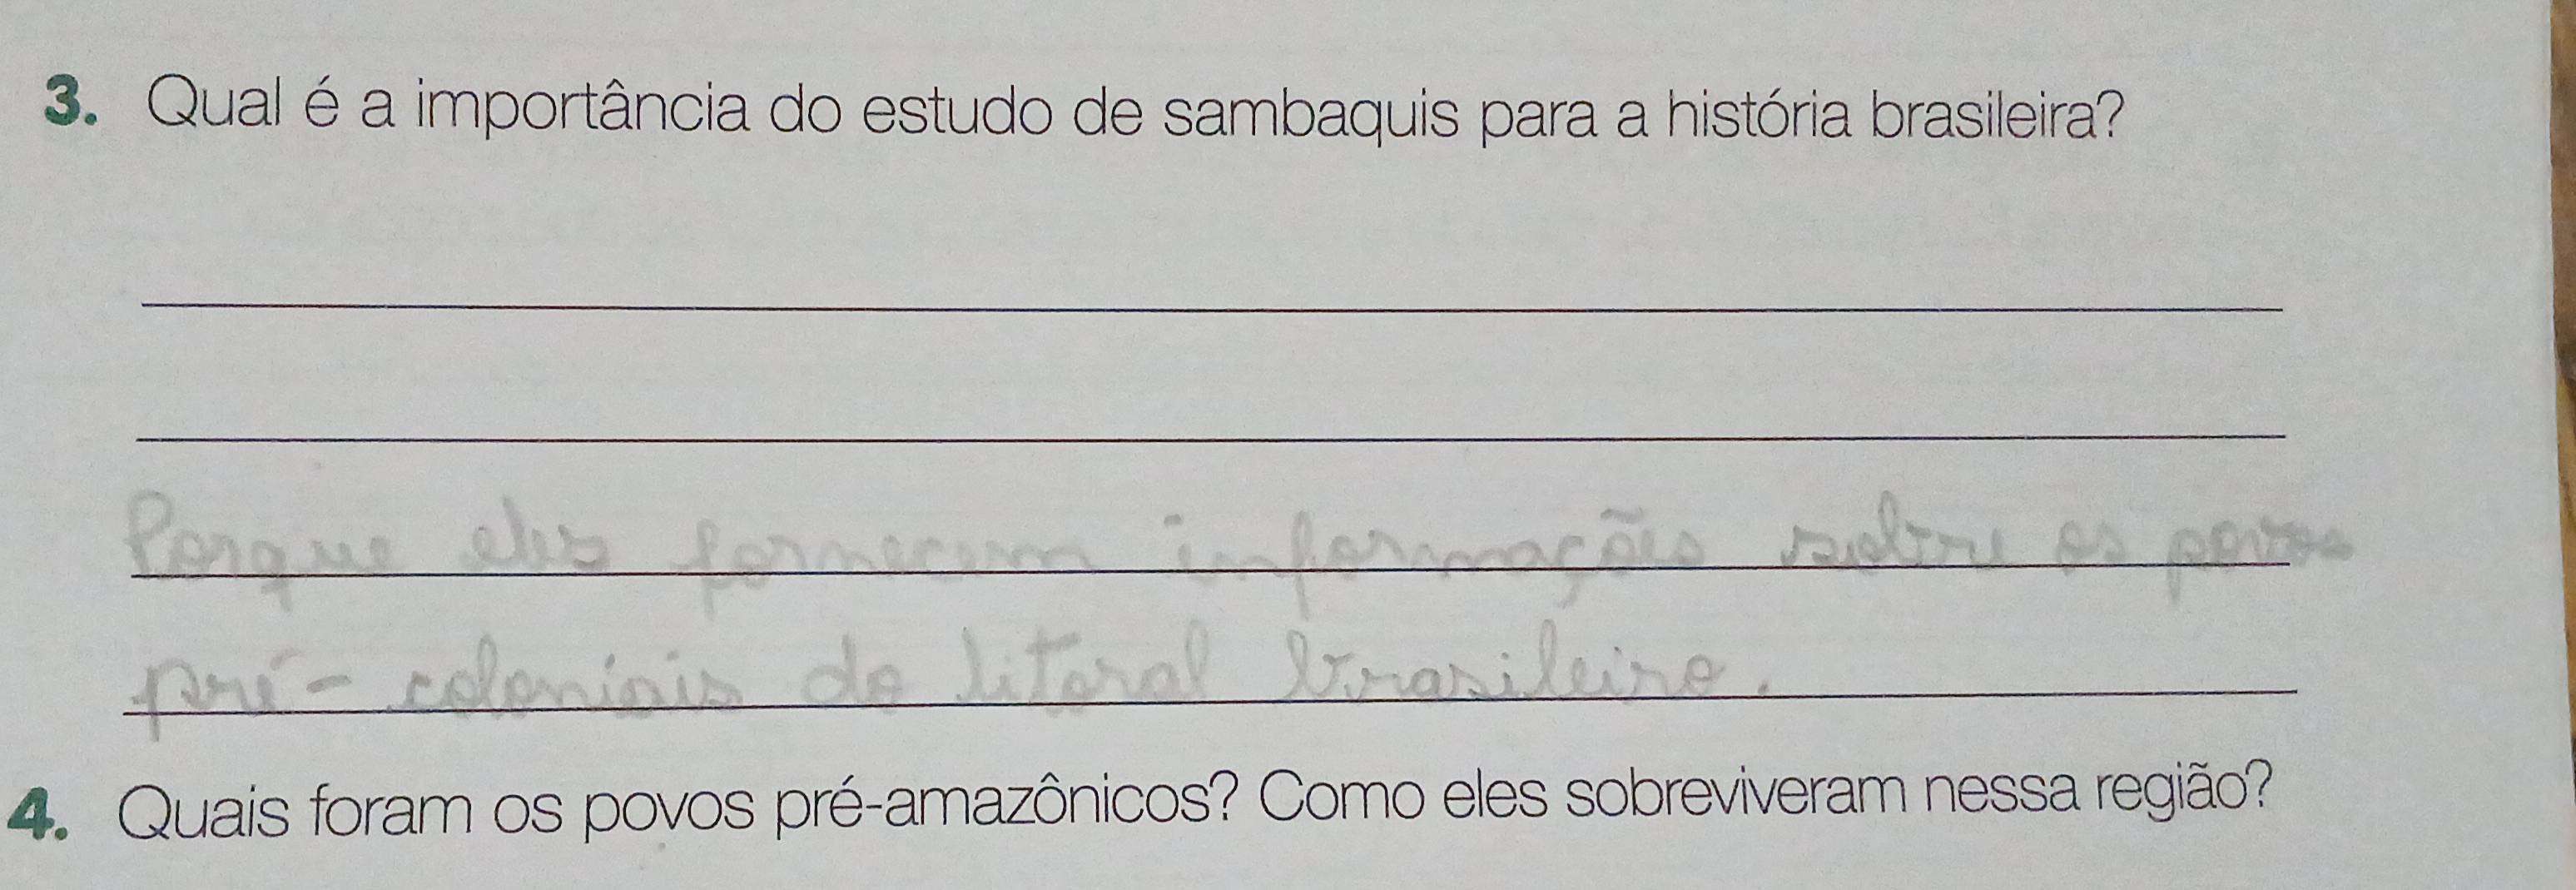 3. Qual é a importância do estudo de sambaquis para a história brasileira?
Porque eles fornecem informações sobre os povos
pré-coloniais do litoral brasileiro.
4. Quais foram os povos pré-amazônicos? Como eles sobreviveram nessa região?